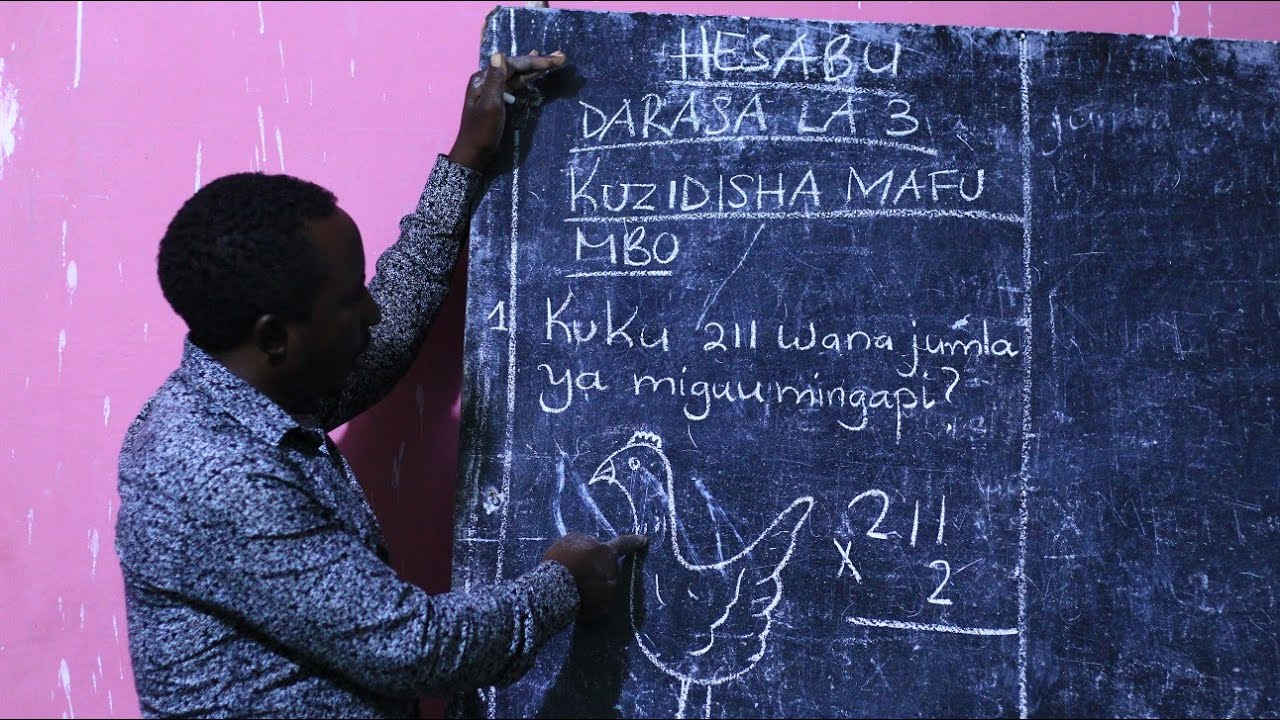 HESABU
DARASA LA 3
KUZIDISHA MAFU
MBO
1 Kuku 211 wana jumla
ya miguu mingapi?
211
x 2